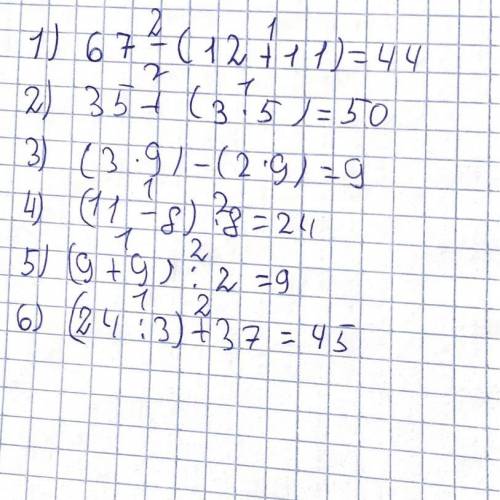 1) 67 - (12 + 11) = 44
2) 35 + (3 · 5) = 50
3) (3 · 9) - (2 · 9) = 9
4) (11 - 8) · 8 = 24
5) (9 + 9) : 2 = 9
6) (24 : 3) + 37 = 45